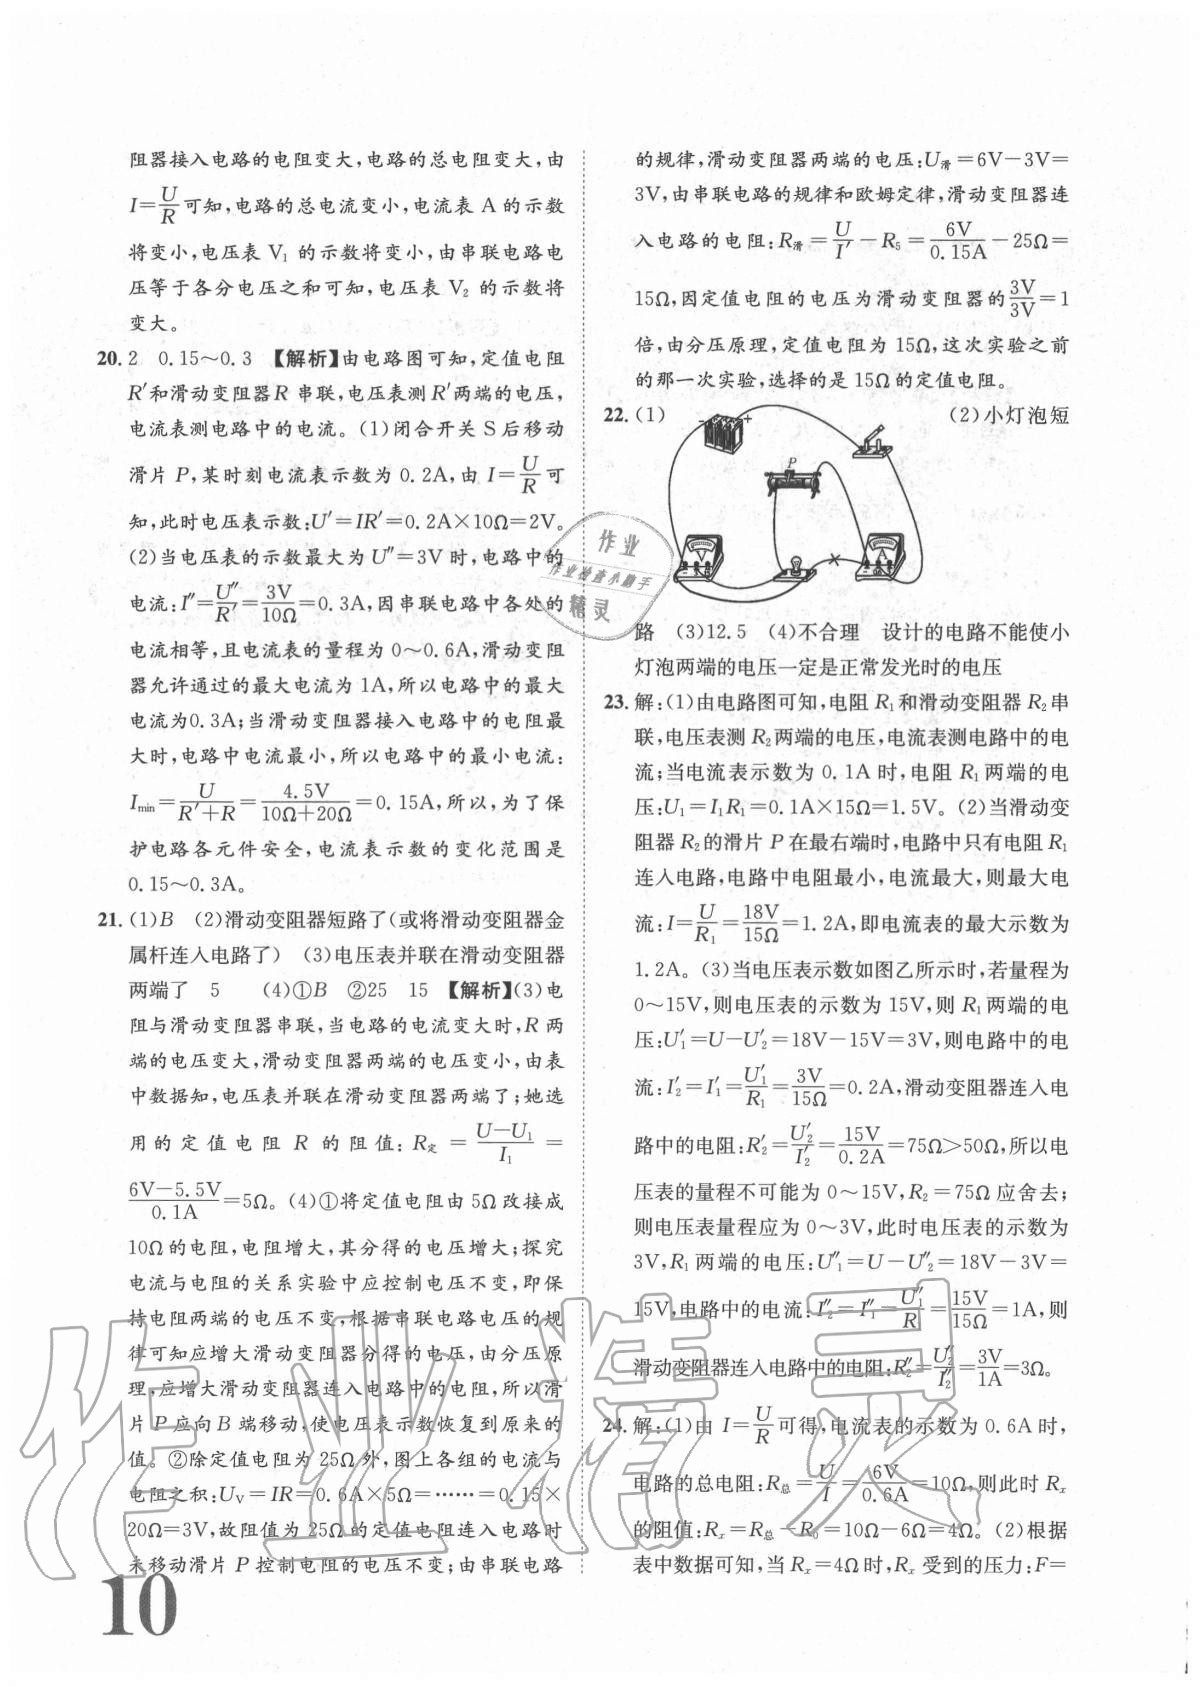 阻器接入电路的电阻变大,电路的总电阻变大,由
I=U/R可知,电路的总电流变小,电流表 A 的示数
将变小,电压表 V₁ 的示数将变小,由串联电路电
压等于各分电压之和可知,电压表 V₂ 的示数将
变大。
20. 2 0.15～0.3 【解析】由电路图可知,定值电阻
R′和滑动变阻器R 串联,电压表测 R′两端的电压,
电流表测电路中的电流。(1)闭合开关 S 后移动
滑片 P,某时刻电流表示数为 0.2A,由 I=U/R可
知,此时电压表示数:U′=IR′=0.2A×10Ω=2V。
(2)当电压表的示数最大为 U″=3V 时,电路中的
电流:I″=U″/R′=3V/10Ω=0.3A,因串联电路中各处的
电流相等,且电流表的量程为 0～0.6A,滑动变阻
器允许通过的最大电流为 1A,所以电路中的最大
电流为0.3A;当滑动变阻器接入电路中的电阻最
大时,电路中电流最小,所以电路中的最小电流:
Imin=U/(R′+R)=4.5V/(10Ω+20Ω)=0.15A,所以,为了保
护电路各元件安全,电流表示数的变化范围是
0.15～0.3A。
21. (1)B (2)滑动变阻器短路了(或将滑动变阻器金
属杆连入电路了) (3)电压表并联在滑动变阻器
两端了 5 (4)①B ②25 15 【解析】(3)电
阻与滑动变阻器串联,当电路的电流变大时,R 两
端的电压变大,滑动变阻器两端的电压变小,由表
中数据知,电压表并联在滑动变阻器两端了;她选
用的定值电阻 R 的阻值:R定=(U−U₁)/I₁=
(6V−5.5V)/0.1A=5Ω。(4)①将定值电阻由 5Ω 改接成
10Ω 的电阻,电阻增大,其分得的电压增大;探究
电流与电阻的关系实验中应控制电压不变,即保
持电阻两端的电压不变,根据串联电路电压的规
律可知应增大滑动变阻器分得的电压,由分压原
理,应增大滑动变阻器连入电路中的电阻,所以滑
片 P 应向 B 端移动,使电压表示数恢复到原来的
值。②除定值电阻为 25Ω 外,图上各组的电流与
电阻之积:UV=IR=0.6A×5Ω=……=0.15×
20Ω=3V,故阻值为 25Ω 的定值电阻连入电路时
未移动滑片 P 控制电阻的电压不变;由串联电路
10
的规律,滑动变阻器两端的电压:U滑=6V−3V=
3V,由串联电路的规律和欧姆定律,滑动变阻器连
入电路的电阻:R滑=U/I′−R₅=6V/0.15A−25Ω=
15Ω,因定值电阻的电压为滑动变阻器的3V/3V=1
倍,由分压原理,定值电阻为 15Ω,这次实验之前
的那一次实验,选择的是 15Ω的定值电阻。
22. (1) (2)小灯泡短
− +
P
V
A
路 (3)12.5 (4)不合理 设计的电路不能使小
灯泡两端的电压一定是正常发光时的电压
23. 解:(1)由电路图可知,电阻 R₁和滑动变阻器 R₂串
联,电压表测 R₂两端的电压,电流表测电路中的电
流;当电流表示数为 0.1A 时,电阻 R₁ 两端的电
压:U₁=I₁R₁=0.1A×15Ω=1.5V。(2)当滑动变
阻器 R₂的滑片 P 在最右端时,电路中只有电阻 R₁
连入电路,电路中电阻最小,电流最大,则最大电
流:I=U/R₁=18V/15Ω=1.2A,即电流表的最大示数为
1.2A。(3)当电压表示数如图乙所示时,若量程为
0～15V,则电压表的示数为 15V,则 R₁ 两端的电
压:U′₁=U−U′₂=18V−15V=3V,则电路中的电
流:I′₂=I′₁=U′₁/R₁=3V/15Ω=0.2A,滑动变阻器连入电
路中的电阻:R′₂=U′₂/I′₂=15V/0.2A=75Ω>50Ω,所以电
压表的量程不可能为 0～15V,R₂=75Ω 应舍去;
则电压表量程应为 0～3V,此时电压表的示数为
3V,R₁ 两端的电压:U″₁=U−U″₂=18V−3V=
15V,电路中的电流:I″₂=I″₁=U″₁/R=15V/15Ω=1A,则
滑动变阻器连入电路中的电阻:R″₂=U″₂/I″₂=3V/1A=3Ω。
24. 解:(1)由 I=U/R可得,电流表的示数为 0.6A时,
电路的总电阻:R总=U/I=6V/0.6A=10Ω,则此时 Rₓ
的阻值:Rₓ=R总−R₀=10Ω−6Ω=4Ω。(2)根据
表中数据可知,当 Rₓ=4Ω 时,Rₓ 受到的压力:F=
作业
作业检查小助手
精灵
作业精灵